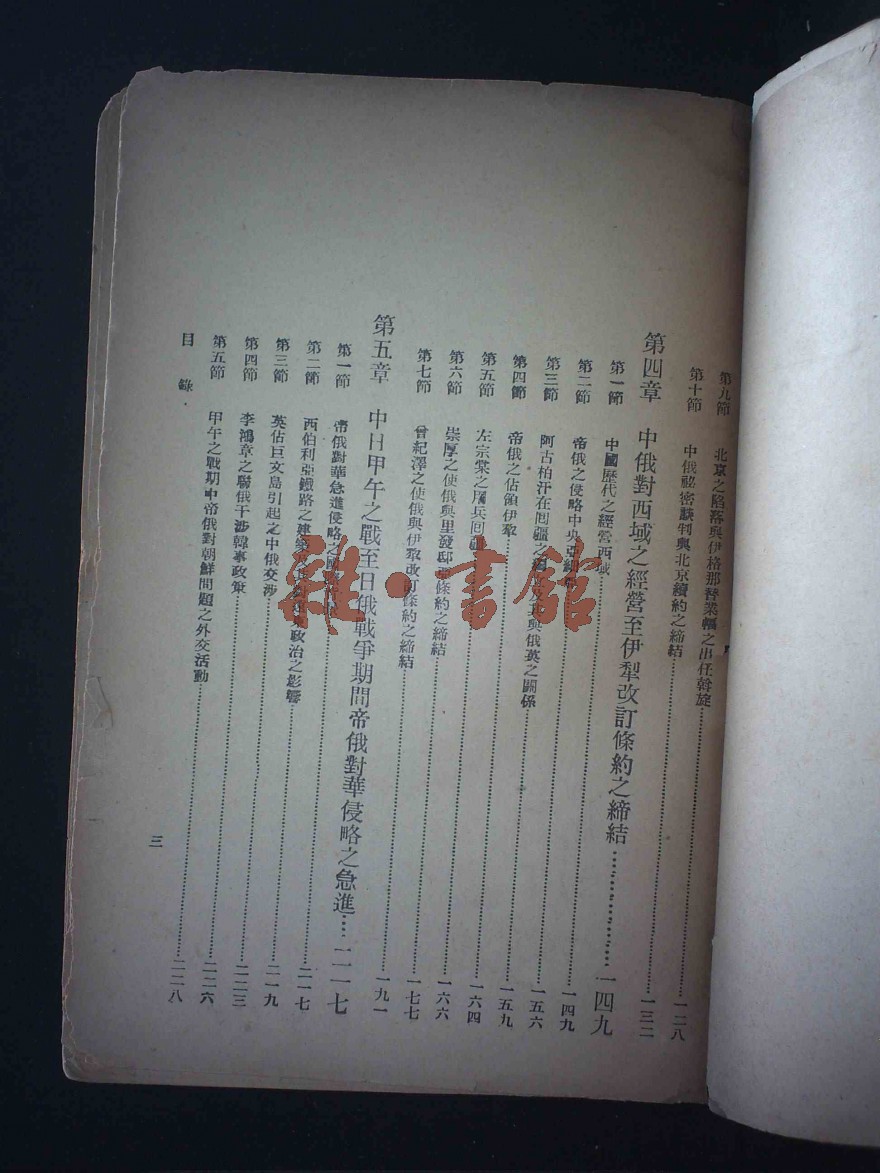 第九節 北京之陷落與伊格那替業幅之出任斡旋……一二八
第十節 中俄祕密談判與北京續約之締結……一三二
第四章 中俄對西域之經營至伊犁改訂條約之締結……一四九
第一節 中國歷代之經營西域……一四九
第二節 帝俄之侵略中央亞細亞……一五六
第三節 阿古柏汗在囘疆之獨立及其與俄英之關係……一五九
第四節 帝俄之佔領伊犁……一六四
第五節 左宗棠之用兵囘疆……一六六
第六節 崇厚之使俄與里發邸亞條約之締結……一七七
第七節 曾紀澤之使俄與伊犁改訂條約之締結……一九一
第五章 中日甲午之戰至日俄戰爭期間帝俄對華侵略之急進……二一七
第一節 帝俄對華急進侵略之國……二一七
第二節 西伯利亞鐵路之建築及其對遠東政治之影響……二一九
第三節 英佔巨文島引起之中俄交涉……二二三
第四節 李鴻章之聯俄干涉韓事政策……二二六
第五節 甲午之戰期中帝俄對朝鮮問題之外交活動……二二八
目錄
三
雜·書館